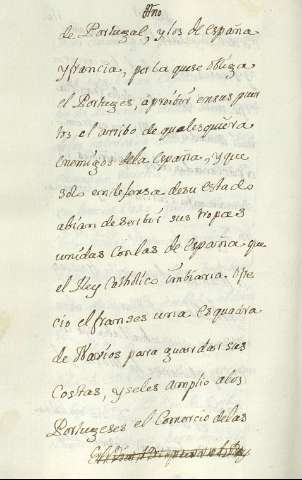 de Portugal, y los de España
y francia, por la que se obliga
el Portuges, à proibir en sus puer
tos el arribo de qualesquiera
enemigos dela España, y que
solo en defensa de su estado
abian de servir sus tropas
unidas con las de España que
el Rey Catholico imbiaria. Ofre
cio el franses una esquadra
de Navios para guardar sus
Costas, y seles amplio alos
Portugeses el Comercio de las